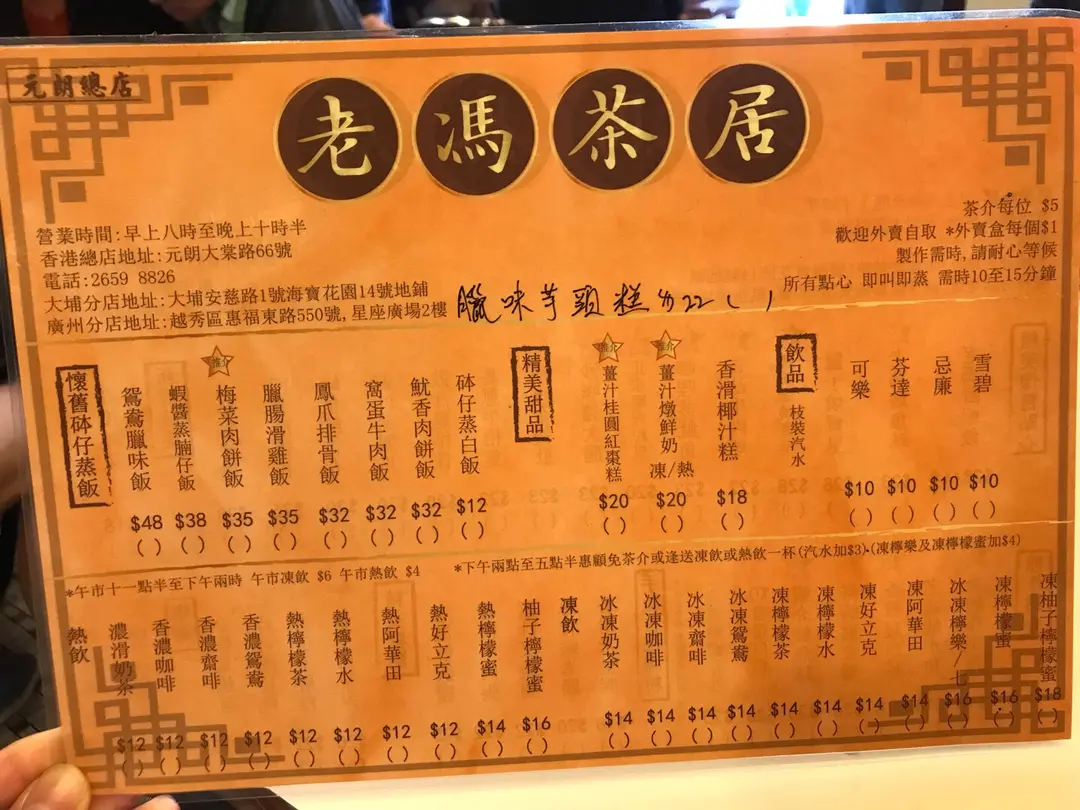 元朗總店
老馮茶居
營業時間:早上八時至晚上十時半
香港總店地址:元朗大棠路66號
電話:2659 8826
大埔分店地址:大埔安慈路1號海寶花園14號地鋪
廣州分店地址:越秀區惠福東路550號,星座廣場2樓
茶介每位 $5
歡迎外賣自取 *外賣盒每個$1
製作需時,請耐心等候
所有點心 即叫即蒸 需時10至15分鐘
臘味芋頭糕 $22 ( )
懷舊砵仔蒸飯
鴛鴦臘味飯 $48 ( )
蝦醬蒸腩仔飯 $38 ( )
推介 梅菜肉餅飯 $35 ( )
臘腸滑雞飯 $35 ( )
鳳爪排骨飯 $32 ( )
窩蛋牛肉飯 $32 ( )
魷香肉餅飯 $32 ( )
砵仔蒸白飯 $12 ( )
精美甜品
推介 薑汁桂圓紅棗糕 $20 ( )
推介 薑汁燉鮮奶 凍/熱 $20 ( )
香滑椰汁糕 $18 ( )
飲品
枝裝汽水
可樂 $10 ( )
芬達 $10 ( )
忌廉 $10 ( )
雪碧 $10 ( )
*午市十一點半至下午兩時 午市凍飲 $6 午市熱飲 $4
*下午兩點至五點半惠顧免茶介或逢送凍飲或熱飲一杯(汽水加$3)·(凍檸樂及凍檸檬蜜加$4)
熱飲
濃滑奶茶 $12 ( )
香濃咖啡 $12 ( )
香濃齋啡 $12 ( )
香濃鴛鴦 $12 ( )
熱檸檬茶 $12 ( )
熱檸檬水 $12 ( )
熱阿華田 $12 ( )
熱好立克 $12 ( )
熱檸檬蜜 $14 ( )
柚子檸檬蜜 $16 ( )
凍飲
冰凍奶茶 $14 ( )
冰凍咖啡 $14 ( )
冰凍齋啡 $14 ( )
冰凍鴛鴦 $14 ( )
凍檸檬茶 $14 ( )
凍檸檬水 $14 ( )
凍好立克 $14 ( )
凍阿華田 $14 ( )
冰凍檸樂/七 $16 ( )
凍檸檬蜜 $16 ( )
凍柚子檸檬蜜 $18 ( )